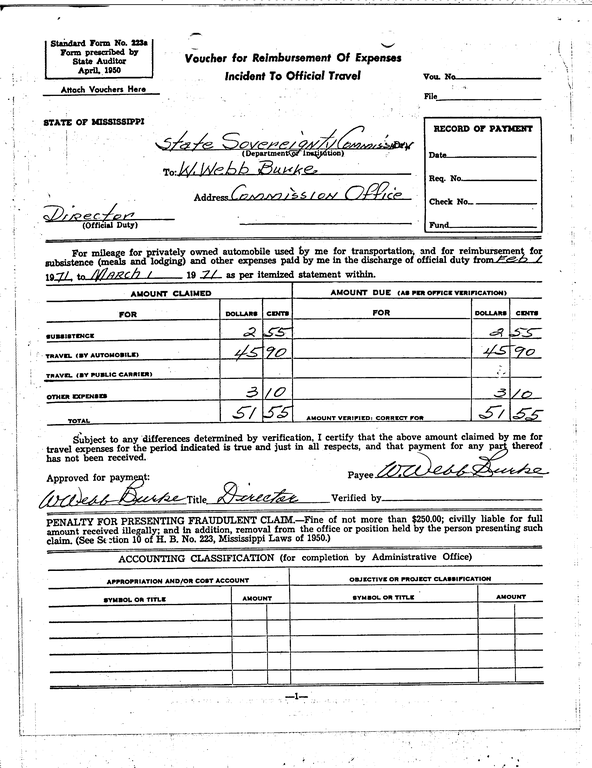 Standard Form No. 223a
Form prescribed by
State Auditor
April, 1950
Attach Vouchers Here
Voucher for Reimbursement Of Expenses
Incident To Official Travel
Vou. No.
File
STATE OF MISSISSIPPI
State Sovereignty Commission
(Department or Institution)
To: W. Webb Burke
Address Commission Office
Director
(Official Duty)
RECORD OF PAYMENT
Date
Req. No.
Check No.
Fund
For mileage for privately owned automobile used by me for transportation, and for reimbursement for
subsistence (meals and lodging) and other expenses paid by me in the discharge of official duty from Feb 1
1971 to March 1 1971 as per itemized statement within.
AMOUNT CLAIMED AMOUNT DUE (AS PER OFFICE VERIFICATION)
FOR DOLLARS CENTS FOR DOLLARS CENTS
SUBSISTENCE 2 55 2 55
TRAVEL (BY AUTOMOBILE) 45 90 45 90
TRAVEL (BY PUBLIC CARRIER)
OTHER EXPENSES 3 10 3 10
TOTAL 51 55 AMOUNT VERIFIED: CORRECT FOR 51 55
Subject to any differences determined by verification, I certify that the above amount claimed by me for
travel expenses for the period indicated is true and just in all respects, and that payment for any part thereof
has not been received.
Approved for payment: Payee W. Webb Burke
W Webb Burke Title Director Verified by
PENALTY FOR PRESENTING FRAUDULENT CLAIM.—Fine of not more than $250.00; civilly liable for full
amount received illegally; and in addition, removal from the office or position held by the person presenting such
claim. (See Section 10 of H. B. No. 223, Mississippi Laws of 1950.)
ACCOUNTING CLASSIFICATION (for completion by Administrative Office)
APPROPRIATION AND/OR COST ACCOUNT OBJECTIVE OR PROJECT CLASSIFICATION
SYMBOL OR TITLE AMOUNT SYMBOL OR TITLE AMOUNT
—1—